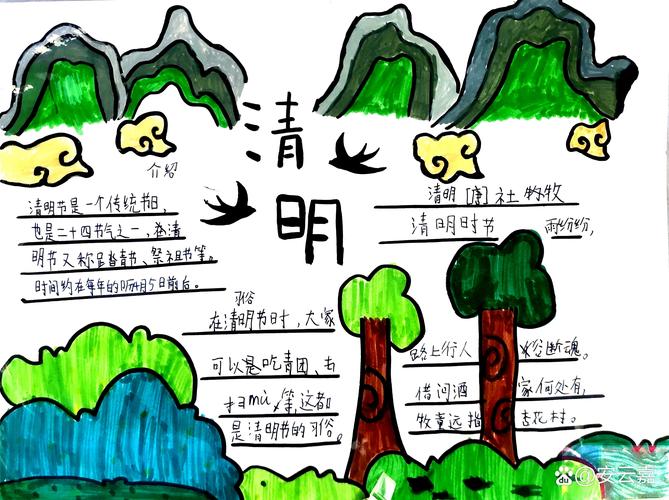 清明
介绍
清明节是一个传统节日,
也是二十四节气之一,清
明节又称踏青节、祭祖节等。
时间约在每年的4月5日前后。
习俗
在清明节时,大家
可以是吃青团、去
扫mù,等,这都
是清明节的习俗。
清明 [唐] 社牧
清明时节 雨纷纷,
路上行人 断魂。
借问酒 家何处有,
牧童远指 杏花村。
Bai du @安云嘉